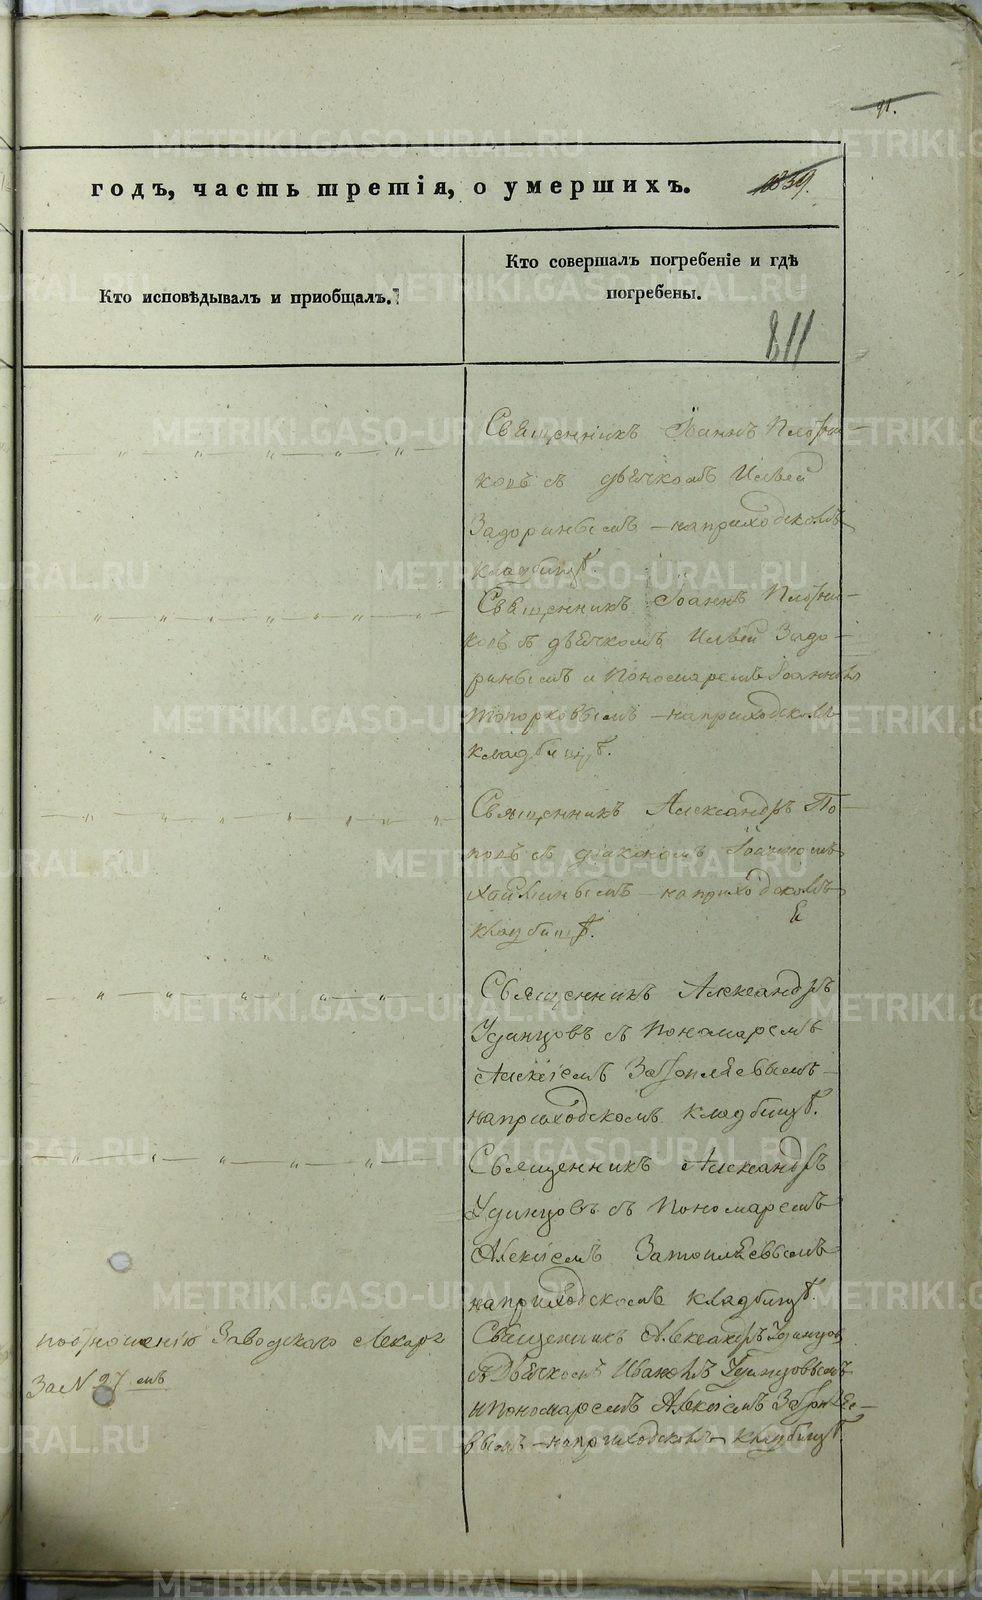 91.
годъ, часть третія, о умершихъ.
1839.
Кто исповѣдывалъ и приобщалъ.
Кто совершалъ погребеніе и гдѣ
погребены.
811
Священникъ Іоаннъ Плотни-
ковъ съ дьячкомъ Ильей
Задоринымъ - на приходскомъ
кладбищѣ.
Священникъ Іоаннъ Плотни-
ковъ съ дьячкомъ Ильей Задо-
ринымъ и Пономаремъ Іоанномъ
Топорковымъ - на приходскомъ
кладбищѣ.
Священникъ Александръ По-
повъ съ діакономъ Іоанномъ
- на приходскомъ
кладбищѣ.
Священникъ Александръ
Удинцовъ съ Пономаремъ
Алексіемъ
на приходскомъ кладбищѣ.
Священникъ Александръ
Удинцовъ съ Пономаремъ
Алексіемъ
на приходскомъ кладбищѣ.
по отношенію Заводскаго Лекаря
За N 27мъ
Священникъ Александръ Удинцов
съ Дьячкомъ Иваномъ Удинцовымъ
и Пономаремъ Алексіемъ
вымъ - на приходскомъ кладбищѣ.
METRIKI.GASO-URAL.RU